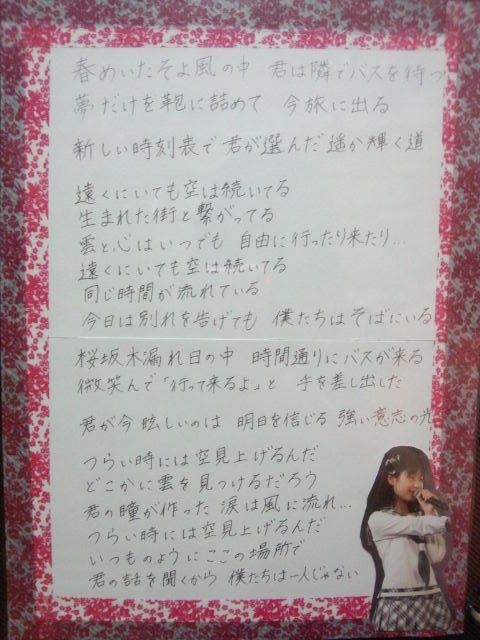 春めいたそよ風の中 君は隣でバスを待つ
夢だけを鞄に詰めて 今旅に出る
新しい時刻表で 君が選んだ 遥か輝く道
遠くにいても空は続いてる
生まれた街と繋がってる
雲と心はいつでも 自由に行ったり来たり…
遠くにいても空は続いてる
同じ時間が流れている
今日は別れを告げても 僕たちはそばにいる
桜坂木漏れ日の中 時間通りにバスが来る
微笑んで「行って来るよ」と 手を差し出した
君が今眩しいのは 明日を信じる 強い意志の光
つらい時には空見上げるんだ
どこかに雲を見つけるだろう
君の瞳が作った 涙は風に流れ…
つらい時には空見上げるんだ
いつものようにここの場所で
君の話を聞くから 僕たちは一人じゃない